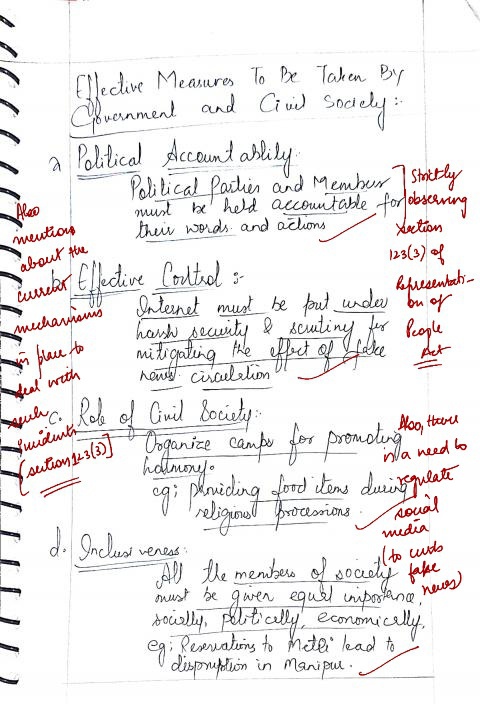 Effective Measures To Be Taken By
Government and Civil Society:-
a Political Accountablity:
Political Parties and Members
must be held accountable for
their words and actions
Strictly
observing
section
123(3) of
Representati-
on of
People
Act
Also
mention
about the
current
mechanisms
in place to
deal with
such
incidents
[section 123(3)]
b. Effective Control :-
Internet must be put under
harsh security & scrutiny for
mitigating the effect of fake
news circulation
c. Role of Civil Society:-
Organize camps for promoting
harmony.
eg; providing food items during
religious processions.
Also, there
is a need to
regulate
social
media
(to curb
fake
news)
d. Inclusiveness:
All the members of society
must be given equal importance,
socially, politically, economically.
eg; Reservations to Meitei lead to
disprruption in Manipur.